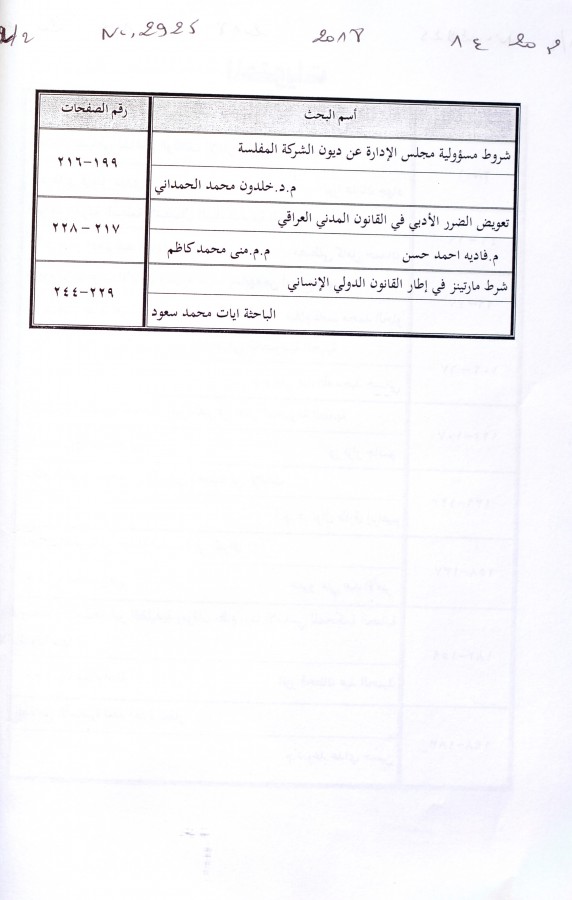 2/2 No, 2925 2018 ١٤ 20 م
أسم البحث رقم الصفحات
شروط مسؤولية مجلس الإدارة عن ديون الشركة المفلسة
١٩٩-٢١٦
م.د.خلدون محمد الحمداني
تعويض الضرر الأدبي في القانون المدني العراقي
٢١٧-٢٢٨
م.فاديه احمد حسن م.م.منى محمد كاظم
شرط مارتينز في إطار القانون الدولي الإنساني
٢٢٩-٢٤٤
الباحثة ايات محمد سعود